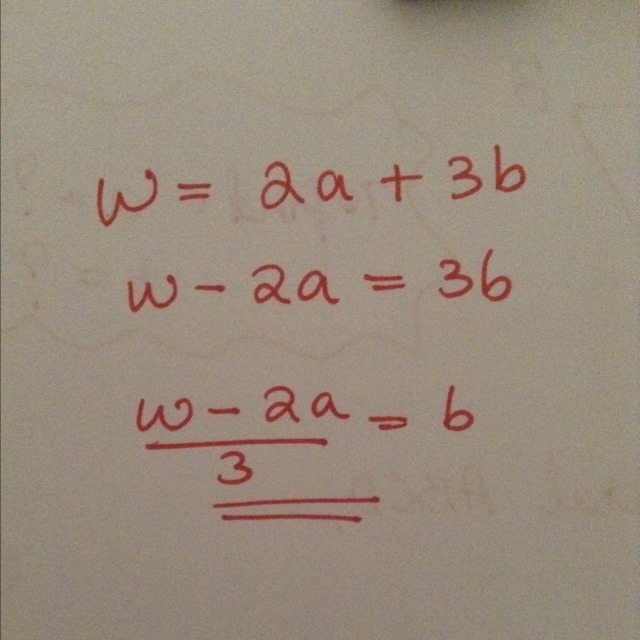 w = 2a + 3b
w - 2a = 3b
w - 2a = b
3